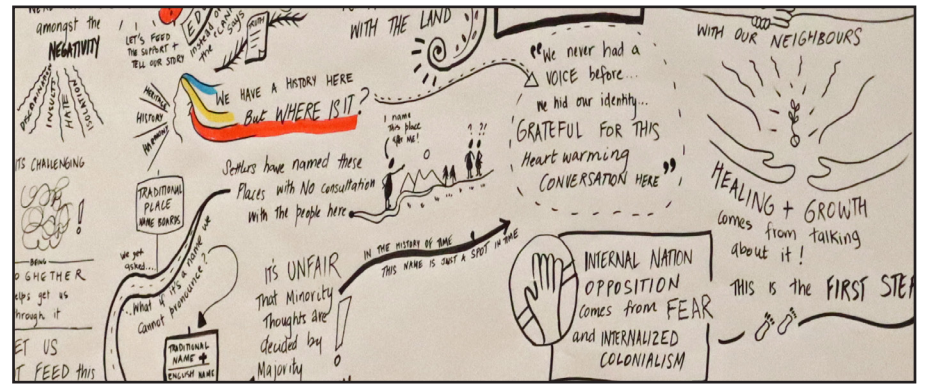 amongst the
NEGATIVITY
DISCRIMINATION
INSULTS
HATE
ISOLATION
ITS CHALLENGING
BEING
helps get us
through it
LET US
FEED this
LET'S FEED
THE SUPPORT +
TELL OUR STORY
instead of
the
says
TRUTH
HERITAGE
HISTORY
WE HAVE A HISTORY HERE
But WHERE IS IT?
TRADITIONAL
PLACE
NAME BOARDS
We get
asked...
...What if it's a name we
Cannot pronounce?
TRADITIONAL
NAME +
ENGLISH NAME
Settlers have named these
Places with NO consultation
with the people here
I name
this place
for me!
? ?!
IT'S UNFAIR
That Minority
Thoughts are
decided by
Majority
!
IN THE HISTORY OF TIME
THIS NAME IS JUST A SPOT IN TIME
WITH THE LAND
"We never had a
VOICE before...
we hid our identity...
GRATEFUL FOR THIS
Heart warming
CONVERSATION HERE"
INTERNAL NATION
OPPOSITION
comes from FEAR
and INTERNALIZED
COLONIALISM
WITH OUR NEIGHBOURS
HEALING + GROWTH
comes from talking
about it!
THIS IS the FIRST STEP